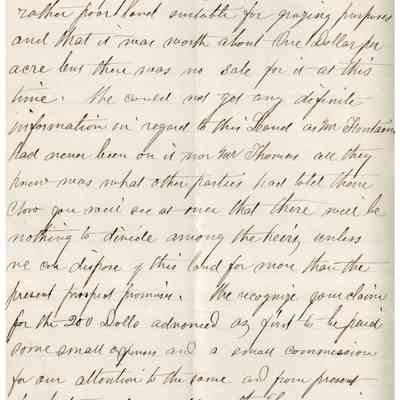 rather poor land suitable for grazing purposes
and that it was worth about One Dollar per
acre but there was no sale for it at this
time. We could not get any definite
information in regard to this Land as Mr Fontaine
had never been on it nor Mr Thomas all they
know was what other parties had told them
Now you will see at once that there will be
nothing to divide among the heirs, unless
we can dispose of this land for more than the
present prospect promises. We recognize your claim
for the 200 Dolls advanced as first to be paid
some small expenses and a small commission
for our attention to the same and from present